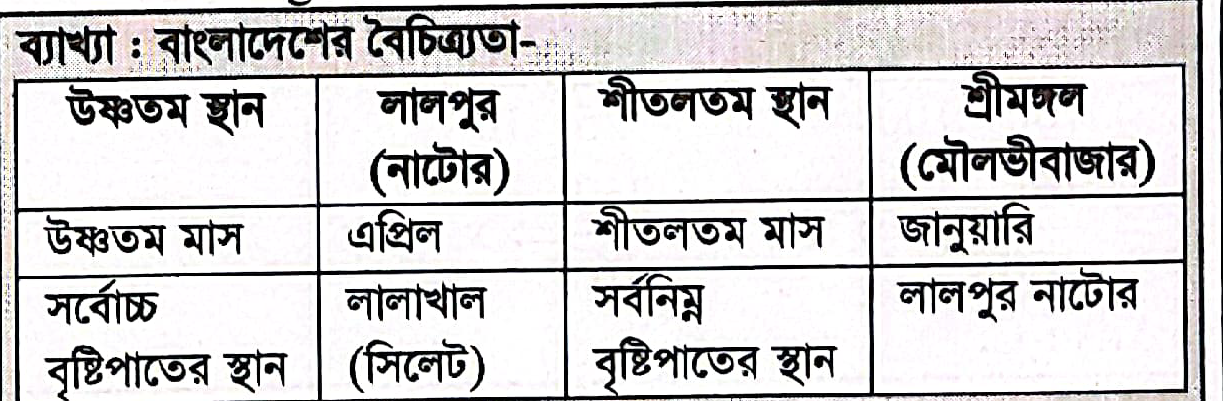 ব্যাখ্যা : বাংলাদেশের বৈচিত্র্যতা-
উষ্ণতম স্থান লালপুর শীতলতম স্থান শ্রীমঙ্গল
(নাটোর) (মৌলভীবাজার)
উষ্ণতম মাস এপ্রিল শীতলতম মাস জানুয়ারি
সর্বোচ্চ লালাখাল সর্বনিম্ন লালপুর নাটোর
বৃষ্টিপাতের স্থান (সিলেট) বৃষ্টিপাতের স্থান